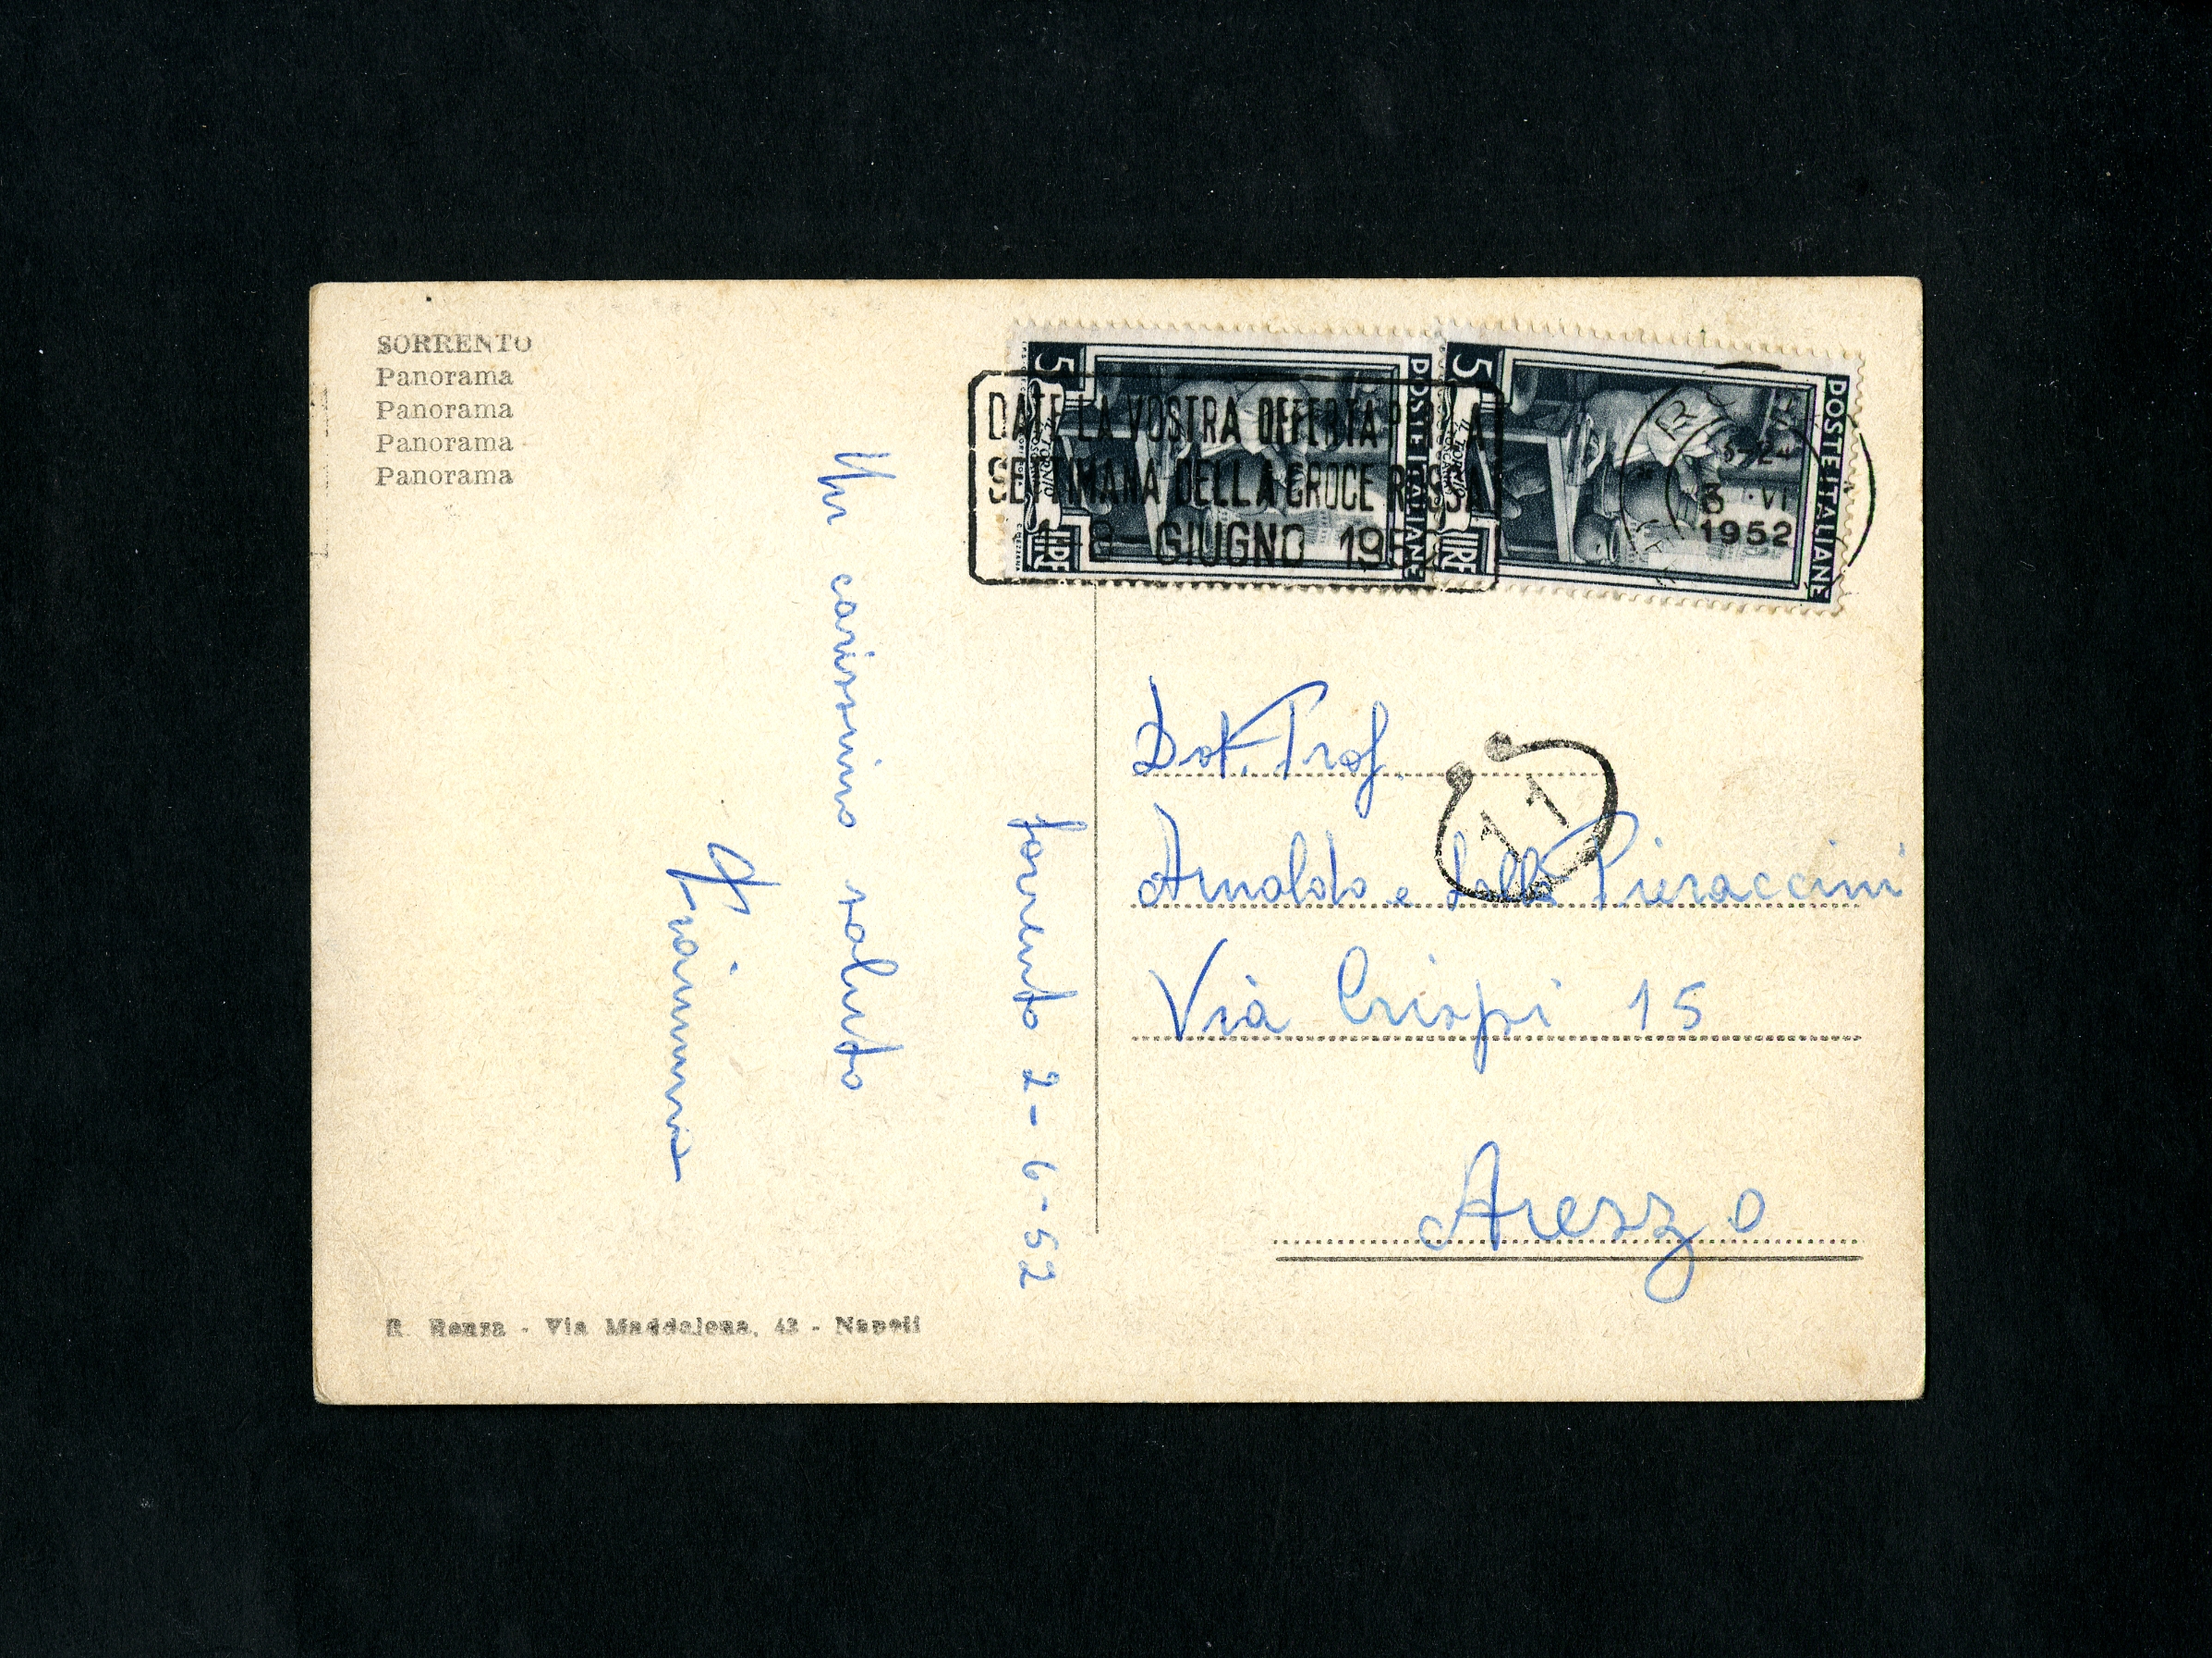 SORRENTO
Panorama
Panorama
Panorama
Panorama
POSTE ITALIANE
5
LIRE
IL TORNIO
POSTE ITALIANE
5
LIRE
IL TORNIO
DATE LA VOSTRA OFFERTA PER LA
SETTIMANA DELLA CROCE ROSSA
1-8 GIUGNO 1952
3 VI
1952
11
Sorrento 2-6-52
Un carissimo saluto
Dot. Prof.
Arnaldo e Pieraccini
Via Crispi 15
Arezzo
R. Renza - Via Maddalena, 42 - Napoli